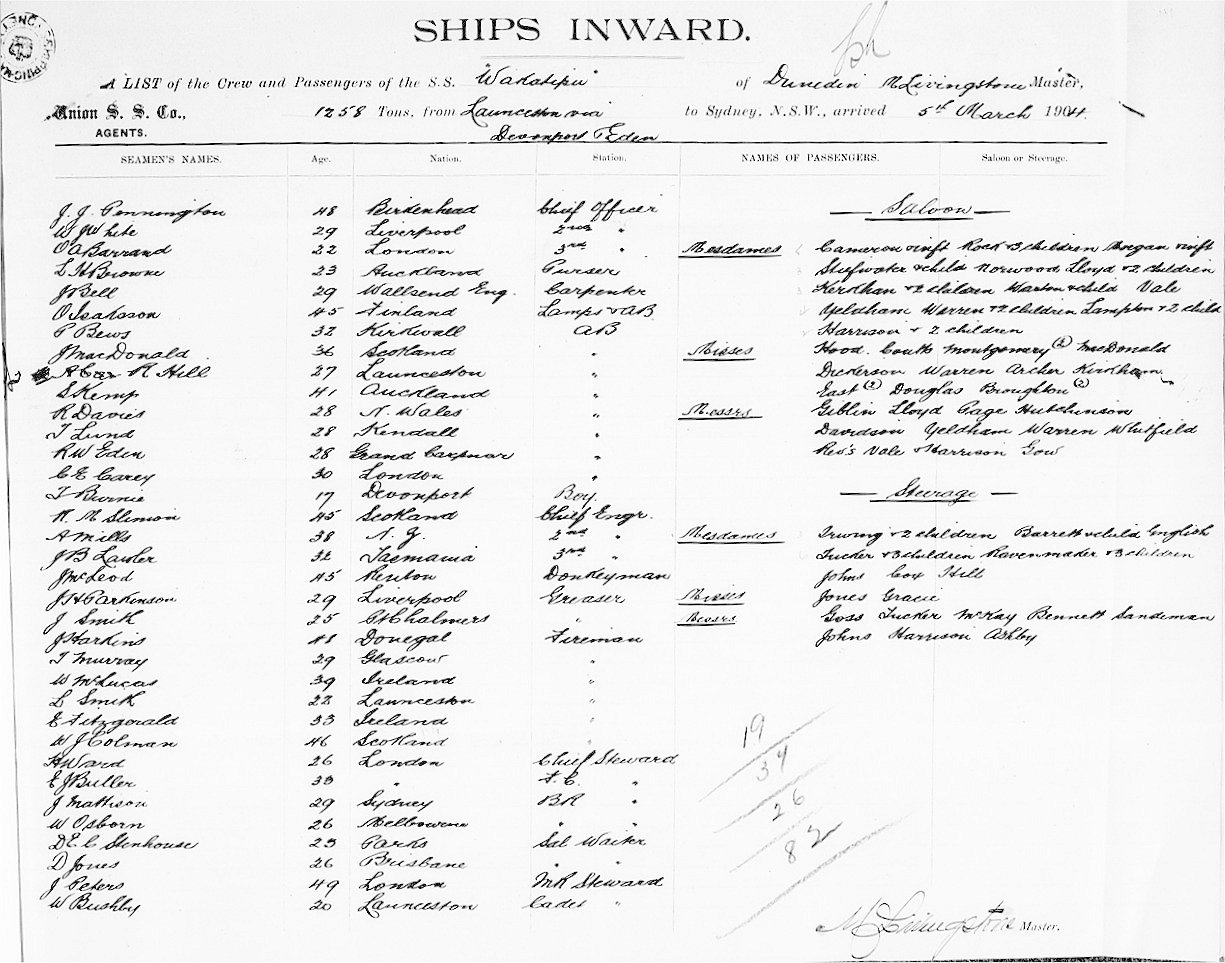 SHIPS INWARD.
A LIST of the Crew and Passengers of the S.S. "Wakatipu" of Dunedin M Livingstone Master,
Union S. S. Co., 1258 Tons, from Launceston via to Sydney, N.S.W., arrived 5th March 1904.
AGENTS. Devonport & Eden
SEAMEN'S NAMES. Age. Nation. Station. NAMES OF PASSENGERS. Saloon or Steerage.
J. J. Pennington 48 Birkenhead Chief Officer — Saloon —
W J White 29 Liverpool 2nd "
O A Barrand 22 London 3rd " Mesdames Cameron & inft Rock & 3 children Morgan & inft
L H Browne 23 Auckland Purser Stiefwater & child Norwood Lloyd & 2 children
J Bell 29 Wallsend Eng. Carpenter Kirkham & 2 children Warton & child Vale
O Isaksson 45 Finland Lamps & AB Yeldham Warren & 2 children Lampton & 2 child
P Bews 32 Kirkwall AB Harrison & 2 children
J MacDonald 36 Scotland " Misses Hood. Coutts Montgomery (2) MacDonald
R Hill 27 Launceston " Dickerson Warren Archer Kirkham
S Kemp 41 Auckland " East (2) Douglas Broughton (2)
R Davies 28 N. Wales " Messrs Giblin Lloyd Page Hutchinson
T Lund 28 Kendall " Davidson Yeldham Warren Whitfield
R W Eden 28 Grand " Rev's Vale & Harrison Gow
C E Carey 30 London "
T Burnie 17 Devonport Boy. — Steerage —
R. M Slimon 45 Scotland Chief Engr.
A Mills 38 N. Z. 2nd " Mesdames Irwing & 2 children Barrett & child English
J B Lawler 32 Tasmania 3rd " Tucker & 3 children Ravenmaker & 3 children
J McLeod 45 Renton Donkeyman Johns Cox Hill
J H Parkinson 29 Liverpool Greaser Misses Jones Gracie
J Smith 25 Pt Chalmers " Messrs Goss Tucker McKay Bennett Sandeman
J Harkins 41 Donegal Fireman Johns Harrison Ashby
T Murray 29 Glascow "
W McLucas 39 Ireland "
L Smith 22 Launceston "
E Fitzgorald 33 Ireland "
W J Colman 46 Scotland
H Ward 26 London Chief Steward
E J Buller 33 " F. C. "
J Mattison 29 Sydney BR "
W Osborn 26 Melbourne " "
D E C Stenhouse 23 Parks Sal Waiter
D Jones 26 Brisbane " "
J Peters 49 London MR Steward
W Bushby 20 Launceston Cadet "
19
34
26
82
M Livingstone Master.